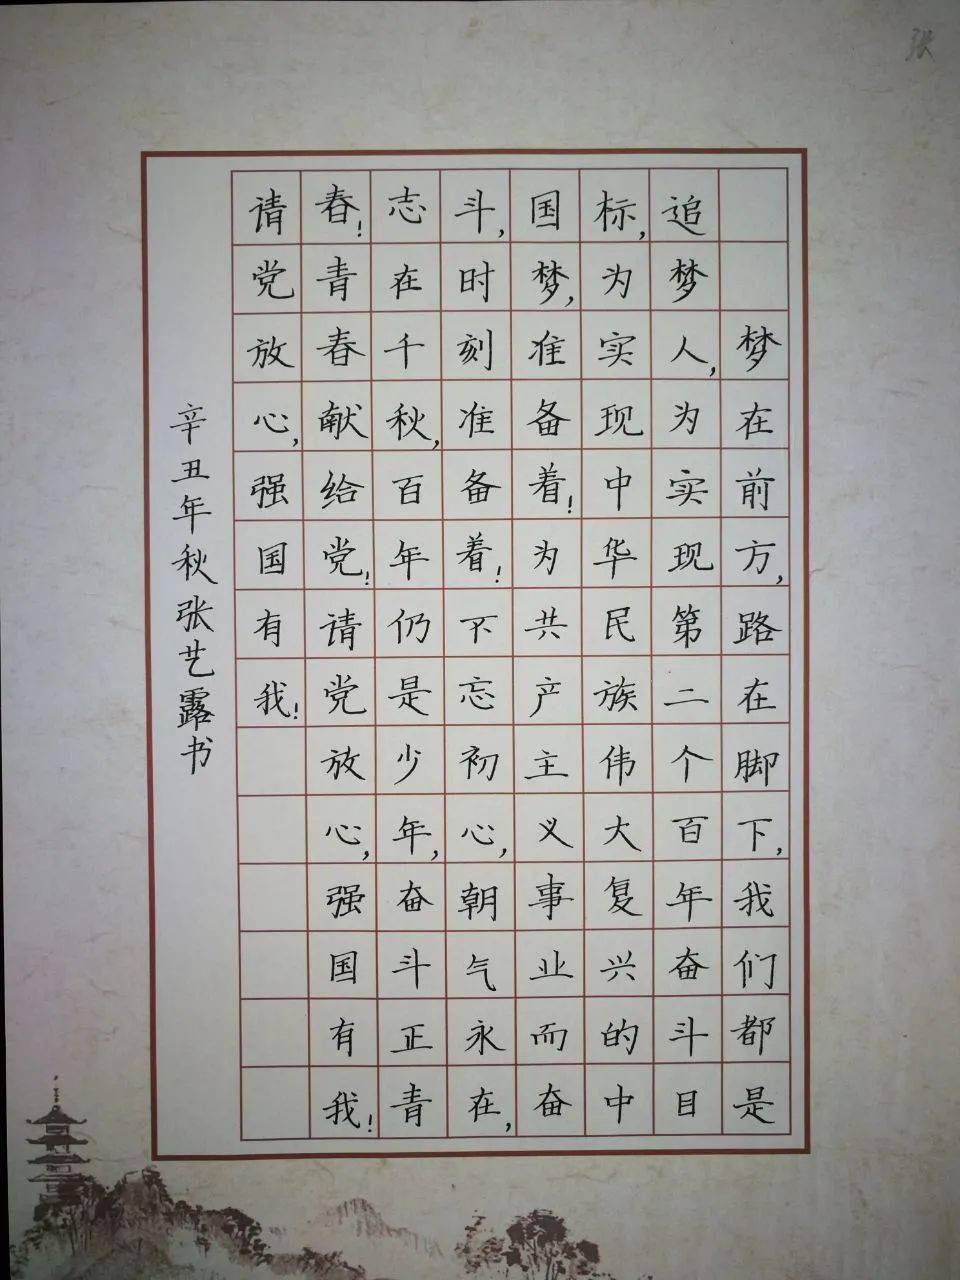 梦在前方,路在脚下,我们都是
追梦人,为实现第二个百年奋斗目
标,为实现中华民族伟大复兴的中
国梦,准备着!为共产主义事业而奋
斗,时刻准备着!不忘初心,朝气永在,
志在千秋,百年仍是少年,奋斗正青
春!青春献给党!请党放心,强国有我!
请党放心,强国有我!
辛丑年秋张艺露书
张